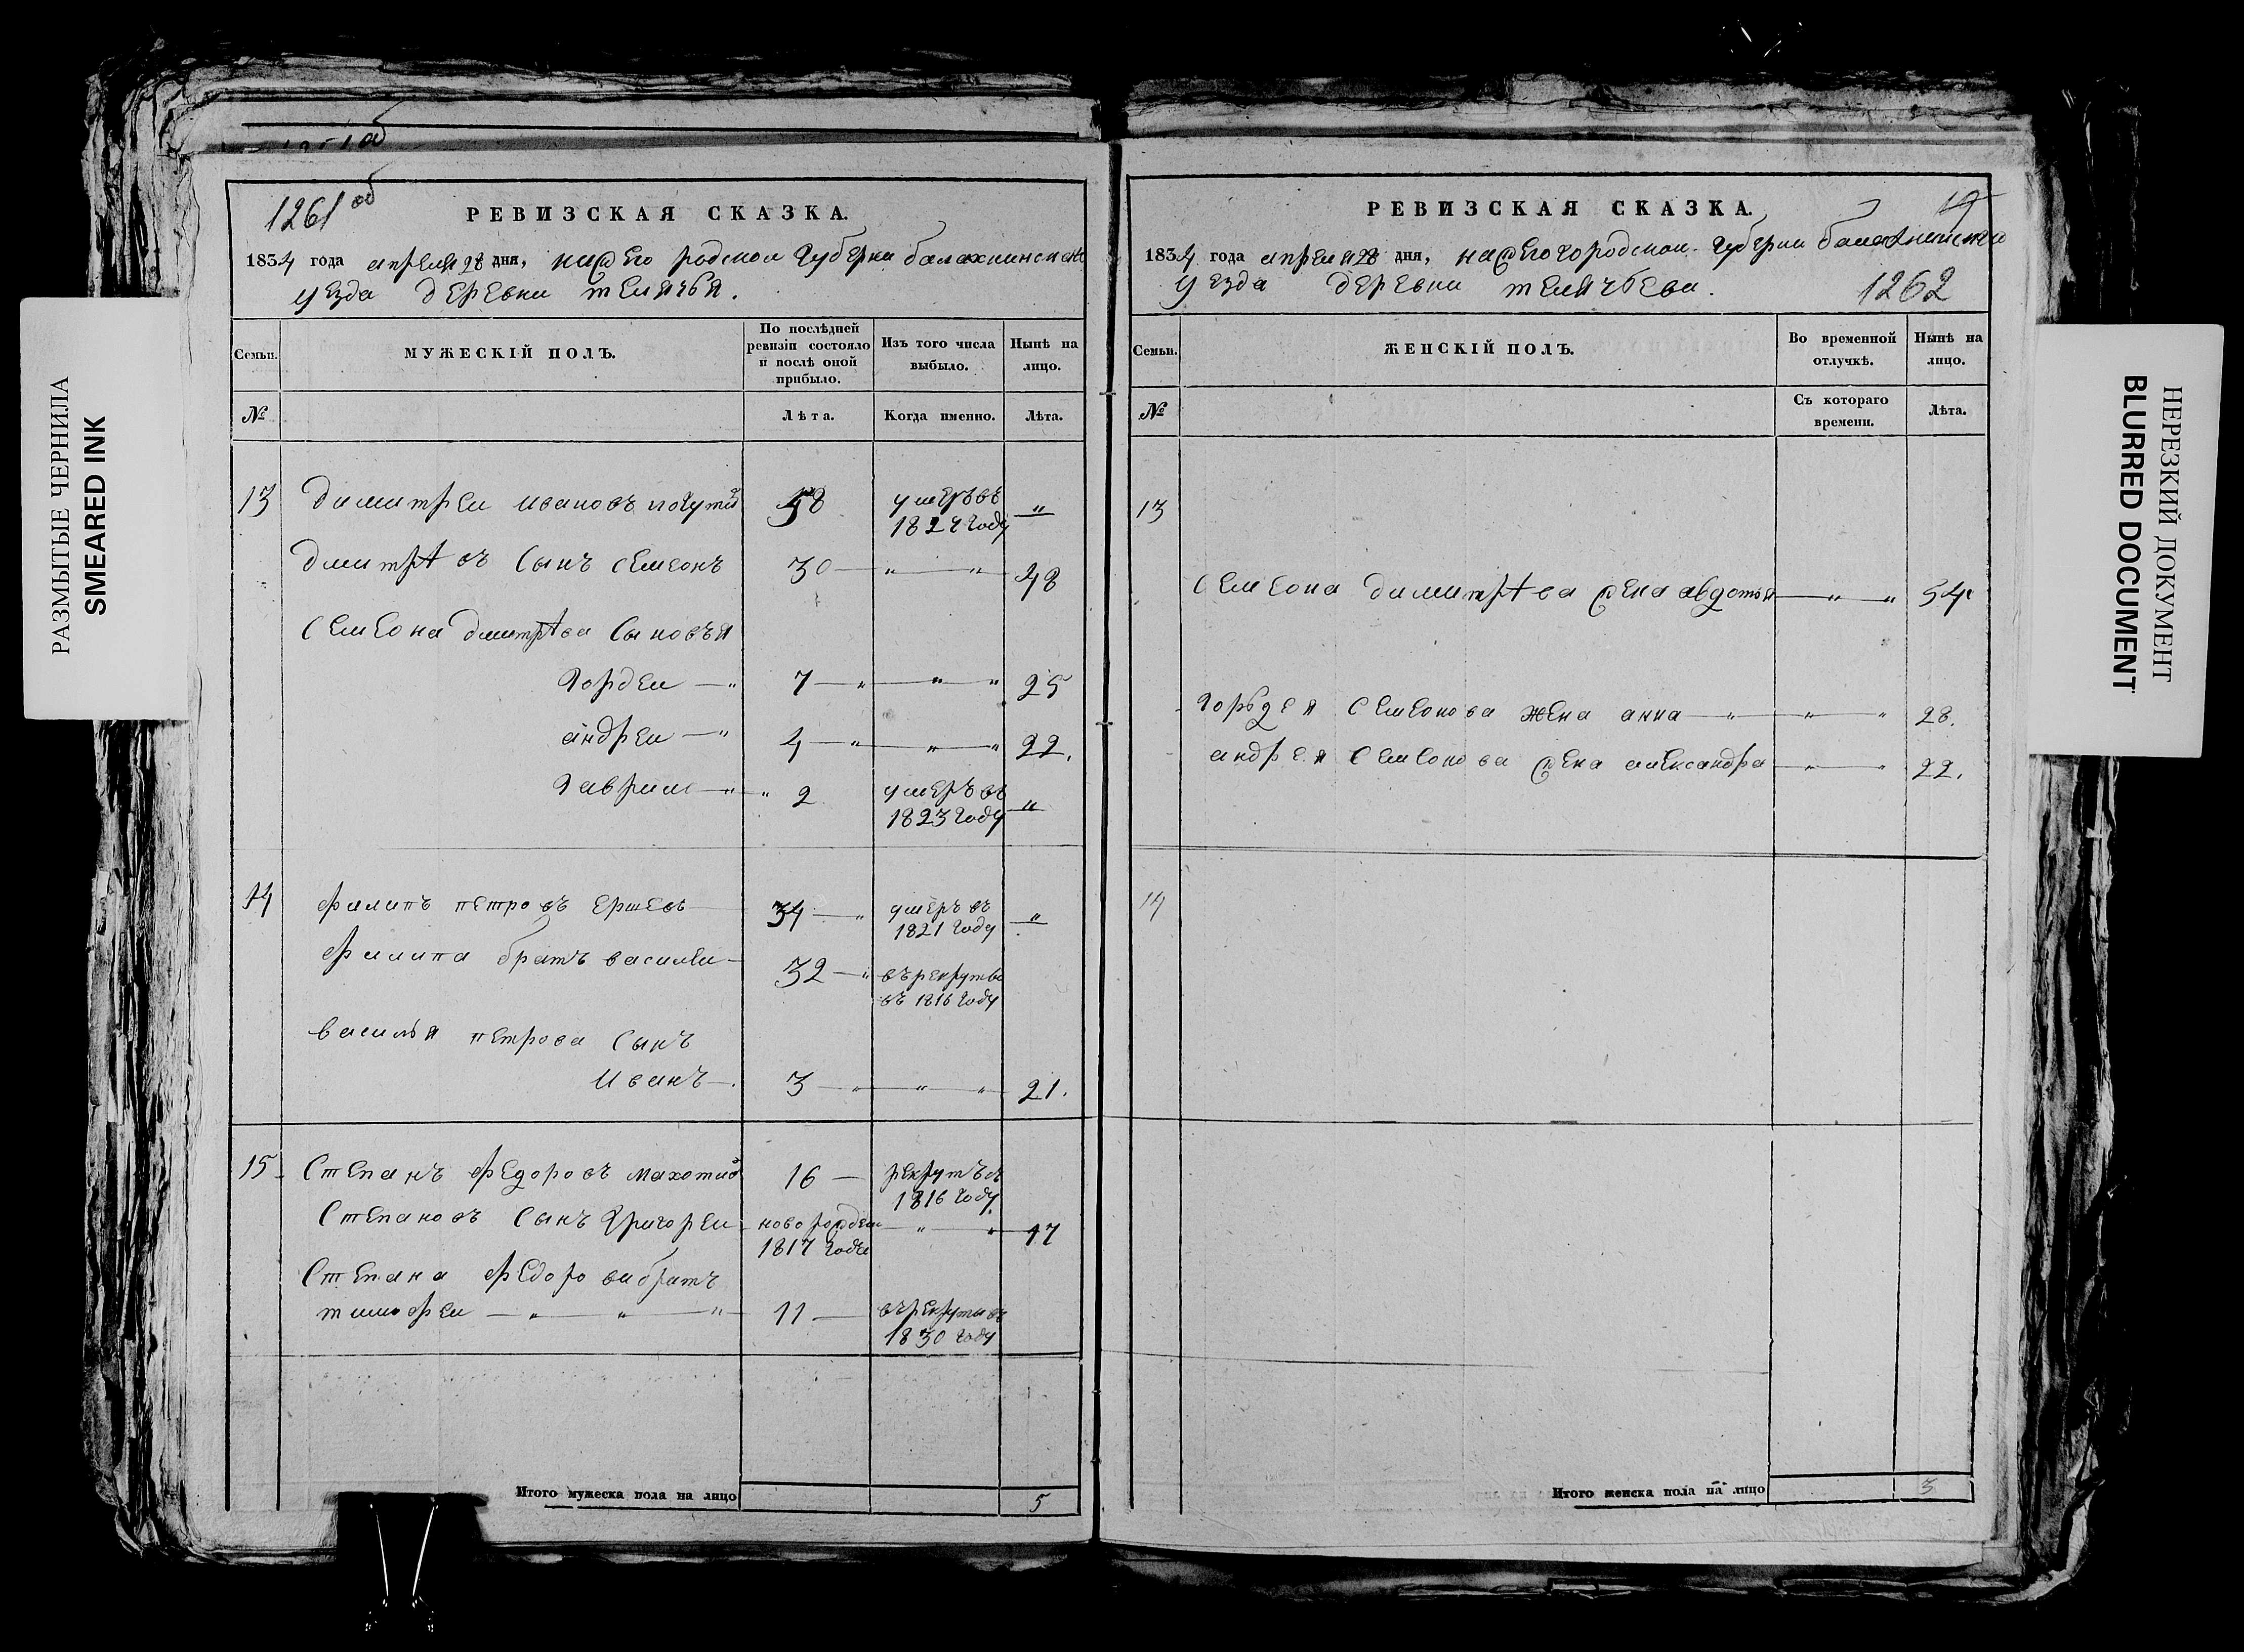 РАЗМЫТЫЕ ЧЕРНИЛА
SMEARED INK
1261 об
РЕВИЗСКАЯ СКАЗКА.
1834 года апреля 28 дня, нижего родской губерни балахнинской
уезда деревни телячья.
Семьи. МУЖЕСКІЙ ПОЛЪ. По послѣдней ревизіи состояло и послѣ оной прибыло. Изъ того числа выбыло. Нынѣ на лицо.
№ Лѣта. Когда именно. Лѣта.
13 димитреи ивановъ 58 умеръ въ 1824 году "
дмитрѣвъ сынъ семеонъ 30 — " — " 48
семеона дмитрѣва сыновья
гордеи — " 7 — " " " 25
андреи — " 4 — " " " 22.
гаврило — " " 2 умеръ въ 1823 году "
14 филипъ петровъ ершевъ 34 — " умеръ въ 1821 году "
филипа братъ василеи — 32 — " въ рекрутво въ 1816 году
василья петрова сынъ
иванъ — . 3 — " " " 21.
15 степанъ федоровъ 16 — рекрутъ въ 1816 году
степановъ сынъ григореи новорожден 1817 года — " " 17
степана федорова братъ
тимофеи — " — " — " 11 — въ рекруты въ 1830 году
Итого мужеска пола на лицо 5
РЕВИЗСКАЯ СКАЗКА.
19
1834 года апреля 28 дня, нижегородской губерни балахнинской
уезда деревни телячьева. 1262
Семьи. ЖЕНСКІЙ ПОЛЪ. Во временной отлучкѣ. Нынѣ на лицо.
№ Съ котораго времени. Лѣта.
13
семеона димитрѣва жена авдотья — " " 54
горьдея семеонова жена анна — " " " 28.
андрея семеонова жена александра — " " 22.
14
Итого женска пола на лицо 3
НЕРЕЗКИЙ ДОКУМЕНТ
BLURRED DOCUMENT